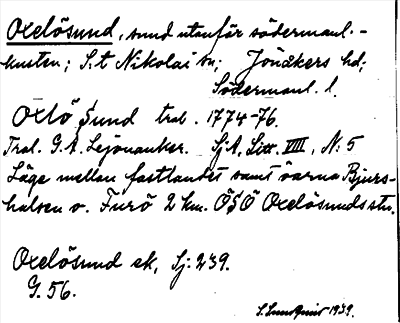 Oxelösund, sund utanför södermanl.-
kusten; S:t Nikolai sn; Jönåkers hd;
Södermanl. l.
Oxlö Sund tral. 1774-76.
Tral. G. A. Lejonanker. Sj.A. Litt. VIII, N: 5
Läge mellan fastlandet samt öarna Bjurs-
halsen o. Furö 2 km. ÖSÖ Oxelösunds stn.
Oxelösund ek, Sj: 239.
G. 56.
S. Lundquist 1939.